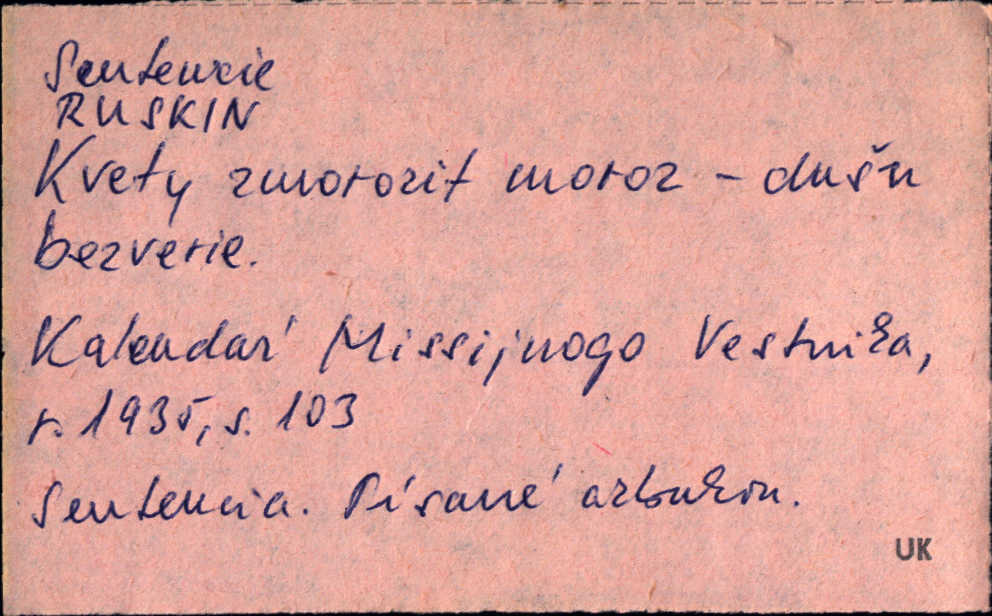 Sentencie
RUSKIN
Kvety zmorozit moroz - dušu
bezverie.
Kalendar' Missijnogo Vestnika,
r. 1935, s. 103
Sentencia. Písané azbukou.
UK